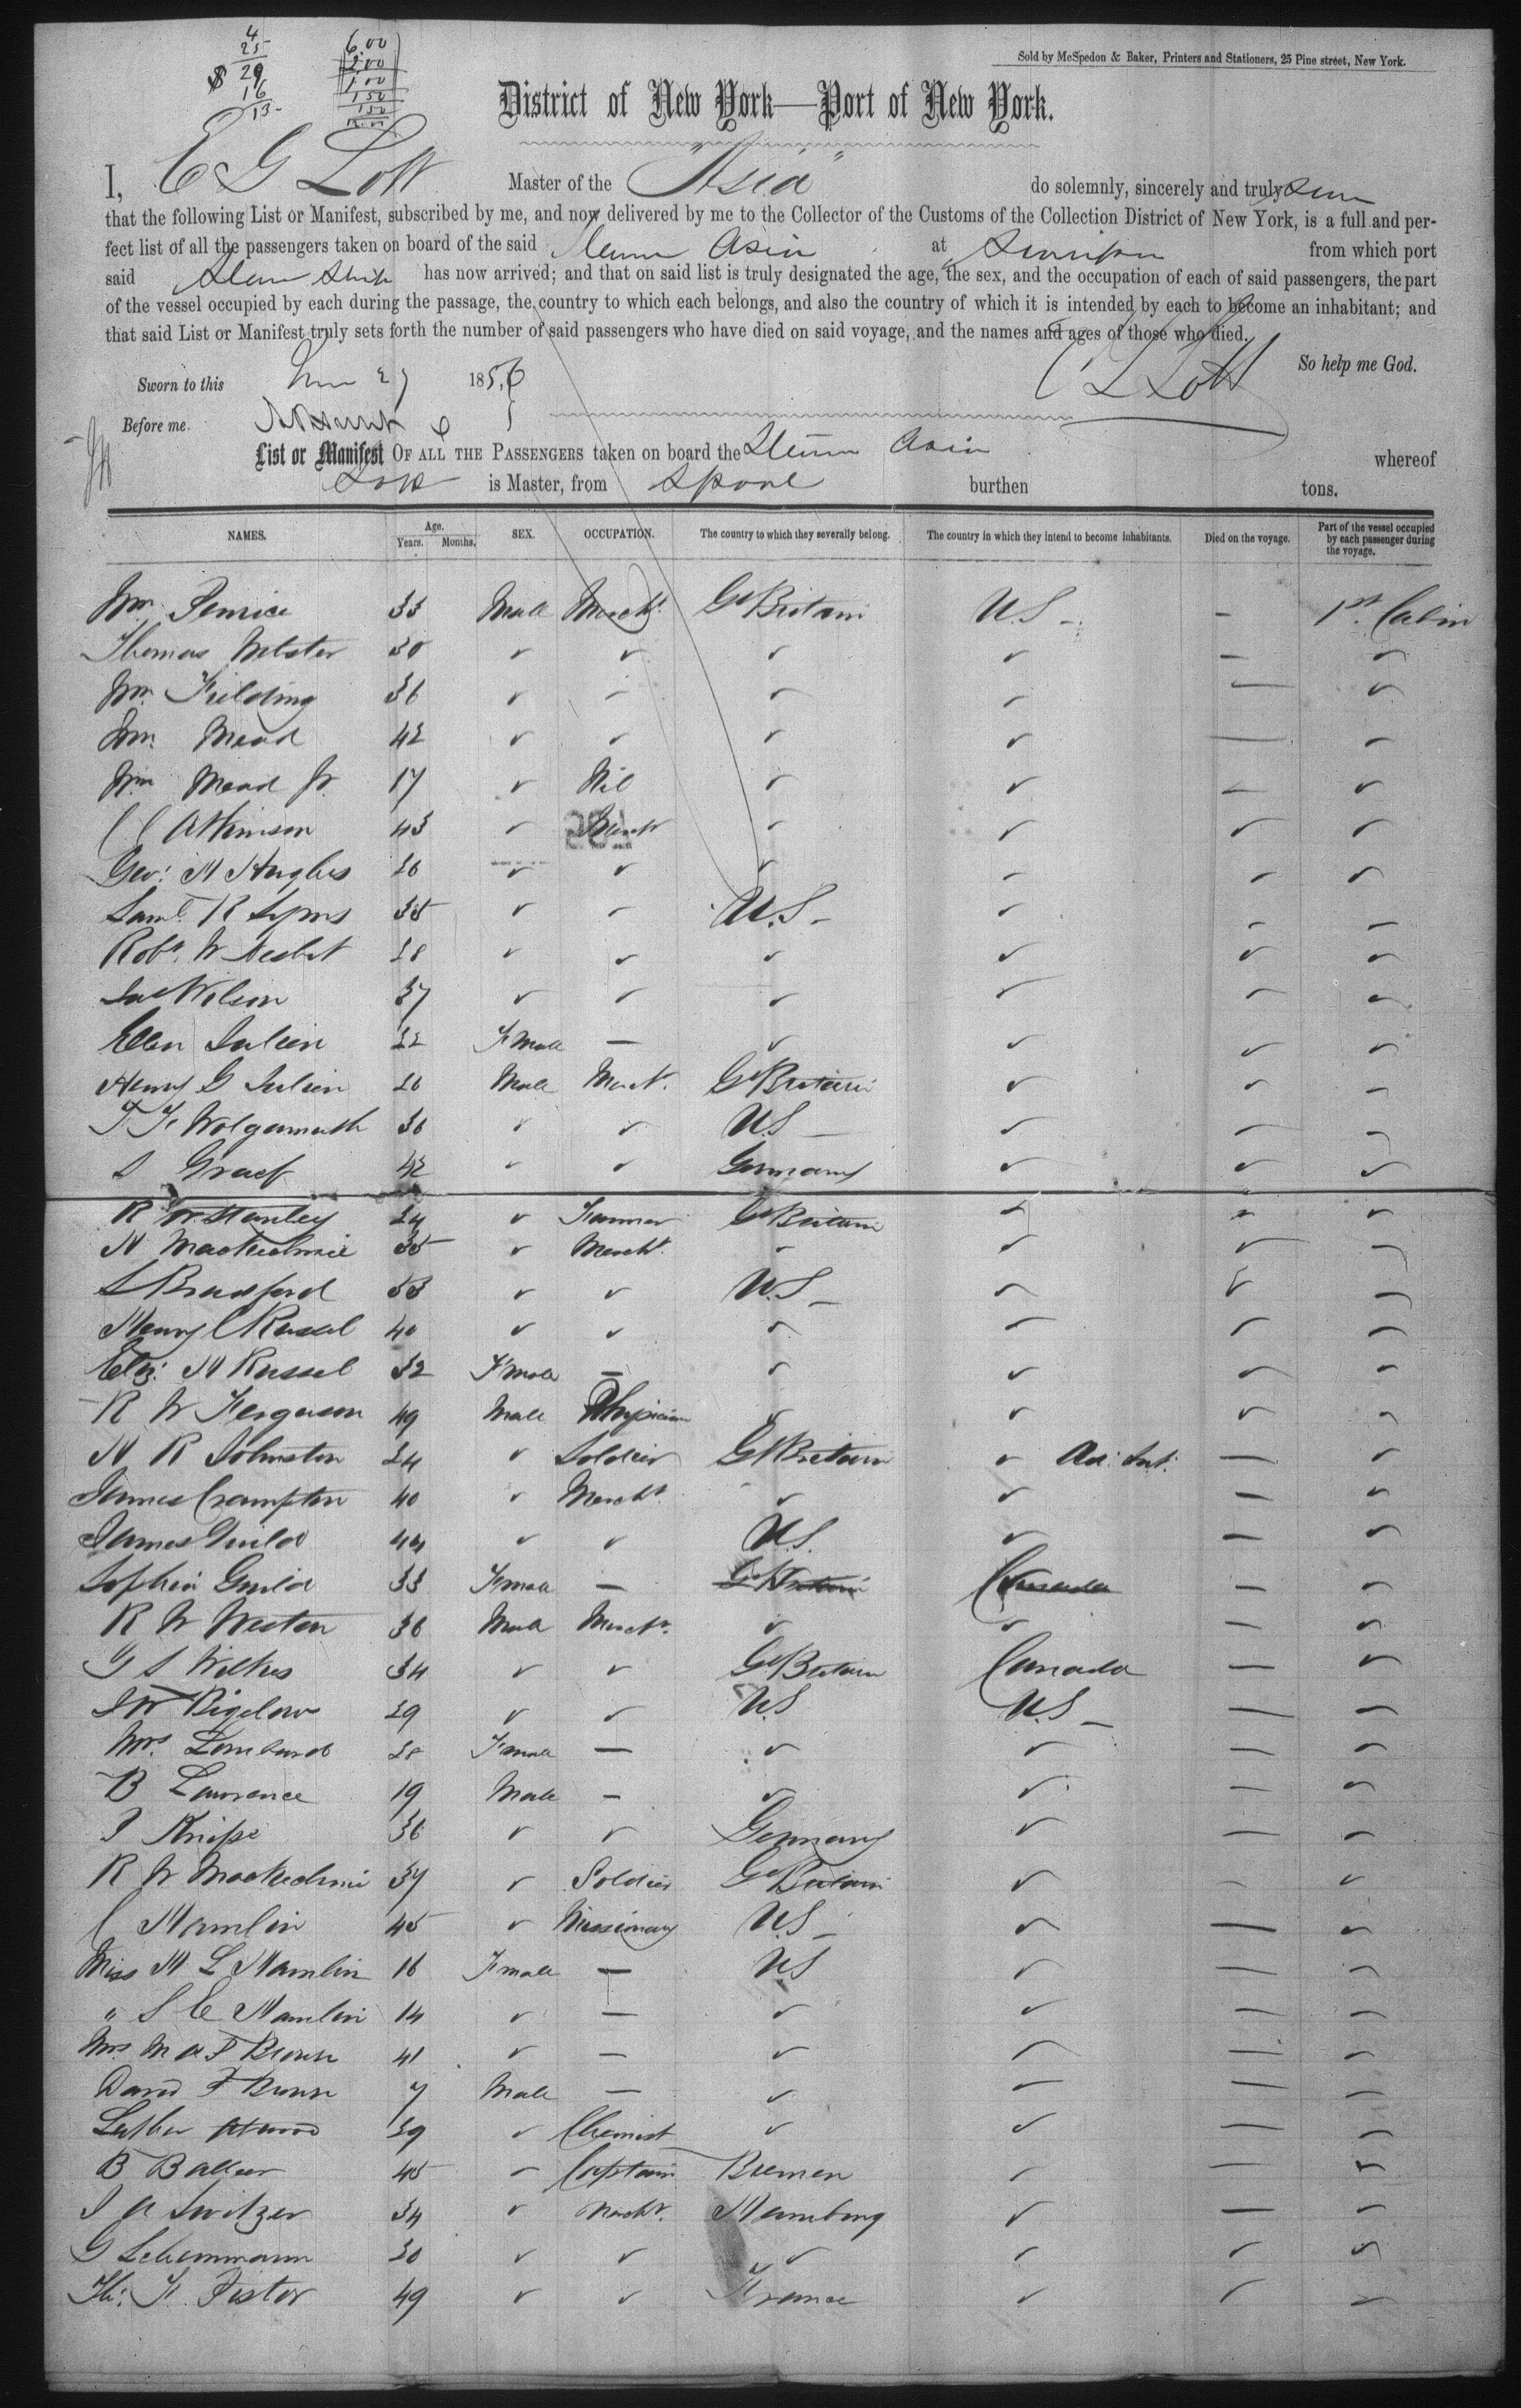 4
25
$ 29
16
13
6.00
2.00
1.00
1.50
1.50
Sold by McSpedon & Baker, Printers and Stationers, 25 Pine street, New York.
District of New York—Port of New York.
I, E G Lott Master of the "Asia" do solemnly, sincerely and truly
that the following List or Manifest, subscribed by me, and now delivered by me to the Collector of the Customs of the Collection District of New York, is a full and per-
fect list of all the passengers taken on board of the said Steamer Asia at from which port
said Steam Ship has now arrived; and that on said list is truly designated the age, the sex, and the occupation of each of said passengers, the part
of the vessel occupied by each during the passage, the country to which each belongs, and also the country of which it is intended by each to become an inhabitant; and
that said List or Manifest truly sets forth the number of said passengers who have died on said voyage, and the names and ages of those who died.
So help me God.
Sworn to this 27 1856 E G Lott
Before me.
List or Manifest OF ALL THE PASSENGERS taken on board the Steamer Asia whereof
Lott is Master, from Lpool burthen tons.
NAMES. Age. Years. Months. SEX. OCCUPATION. The country to which they severally belong. The country in which they intend to become inhabitants. Died on the voyage. Part of the vessel occupied by each passenger during the voyage.
Wm. Penrice 33 Male Mercht. Gt Britain U.S - 1st. Cabin
Thomas Webster 30 ✓ ✓ ✓ ✓ — ✓
Wm. Fielding 36 ✓ ✓ ✓ ✓ — ✓
Wm. Mead 42 ✓ ✓ ✓ ✓ — ✓
Wm Mead Jr. 17 ✓ Nil ✓ ✓ — ✓
C C Atkinson 43 ✓ Mercht ✓ ✓ ✓ ✓
Geo: H Hughes 26 ✓ ✓ ✓ ✓ ✓ ✓
Saml. R Syms 35 ✓ ✓ U.S - ✓ ✓ ✓
Robt. W Nesbit 28 ✓ ✓ ✓ ✓ ✓ ✓
Jas Wilson 37 ✓ ✓ ✓ ✓ ✓ ✓
Ellen Julien 22 Female — ✓ ✓ ✓ ✓
Henry G Julien 26 Male Mercht. Gt Britain ✓ ✓ ✓
T. F. Wolgamuth 36 ✓ ✓ U.S — ✓ ✓ ✓
S Graef 42 ✓ ✓ Germany ✓ ✓ ✓
R W Stanley 24 ✓ Farmer Gt Britain ✓ ✓ ✓
H Mackechnie 35 ✓ Mercht. ✓ ✓ ✓ ✓
S Bradford 53 ✓ ✓ U.S - ✓ ✓ ✓
Henry C Russel 40 ✓ ✓ ✓ ✓ ✓ ✓
Eliz: H Russel 32 Female — ✓ ✓ ✓ ✓
R W Ferguson 49 Male Physician ✓ ✓ ✓ ✓
H R Johnston 24 ✓ Soldier Gt Britain ✓ — ✓
James Crampton 40 ✓ Mercht. ✓ ✓ — ✓
James Guild 44 ✓ ✓ U.S. ✓ — ✓
Sophia Guild 33 Female — Gt Britain Canada — ✓
R W Weston 36 Male Mercht. ✓ ✓ — ✓
G S Wilkes 34 ✓ ✓ Gt Britain Canada — ✓
J W Bigelow 29 ✓ ✓ U.S U.S - — ✓
Mrs. Lombard 28 Female — ✓ ✓ — ✓
B Lawrence 19 Male - ✓ ✓ — ✓
J Knipe 36 ✓ ✓ Germany ✓ — ✓
R W Mackechnie 37 ✓ Soldier Gt Britain ✓ — ✓
C Hamlin 45 ✓ Missionary U.S - ✓ — ✓
Miss H L Hamlin 16 Female — U.S ✓ — ✓
" S E Hamlin 14 ✓ — ✓ ✓ — ✓
Mrs M A F Brown 41 ✓ — ✓ ✓ — ✓
David F Brown 7 Male — ✓ ✓ — ✓
Luther Atwood 29 ✓ Chemist ✓ ✓ — ✓
B Balleer 45 ✓ Captain Bremen ✓ — ✓
J A Switzer 34 ✓ Mercht. Hamburg ✓ — ✓
G Schemmann 30 ✓ ✓ ✓ ✓ ✓ ✓
Th: F. Pistor 49 ✓ ✓ France ✓ ✓ ✓